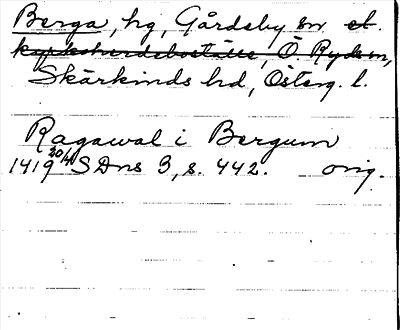 Berga, hg, Gårdeby sn et.
kyrkoherdeboställe, Ö. Ryds sn,
Skärkinds hd, Österg. l.
Ragawal i Bergum
1419 20/4 SDns 3, s. 442. orig.